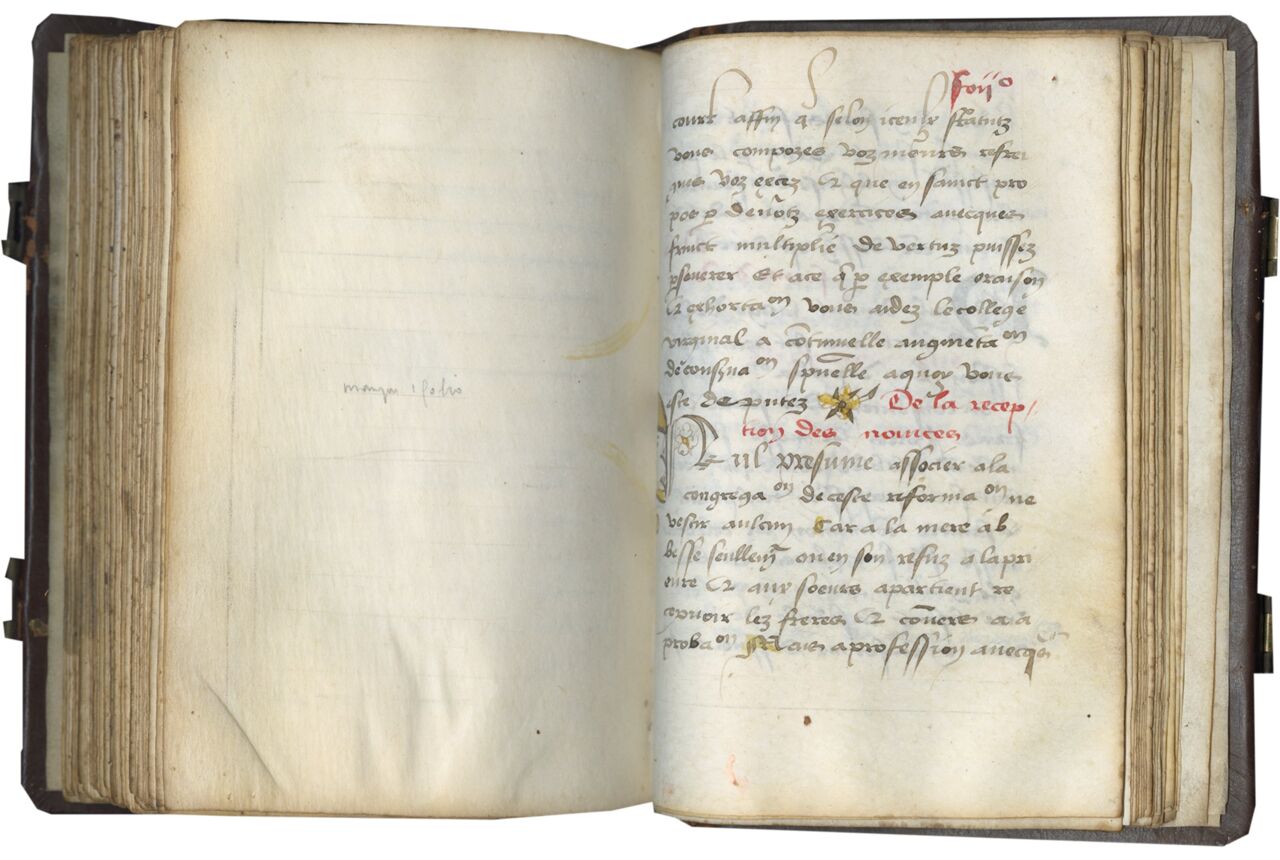 manque 1 folio
court affin q̃ selon iceulx statutz
vous composes voz meurs refrei
gnes voz excez & que en sainct pro
pos p devotz exercices avecques
fruict multiplie de vertuz puissez
pseverer Et ace q̃ p exemple oraison
& exhorta^on vous aidez le college
virginal a continuelle augmeta^on
de conserva^on spuelle a quoy vous
este de putez De la recep
tion des novices
Nul presume associer a la
congrega^on de ceste reforma^on ne
vestir aulcun Car a la mere ab
besse seullemt ou en son refuz a la pri
eure & aux soeurs apartient re
cepvoir lez freres & coveres a a
proba^on Mais a profession avecqs